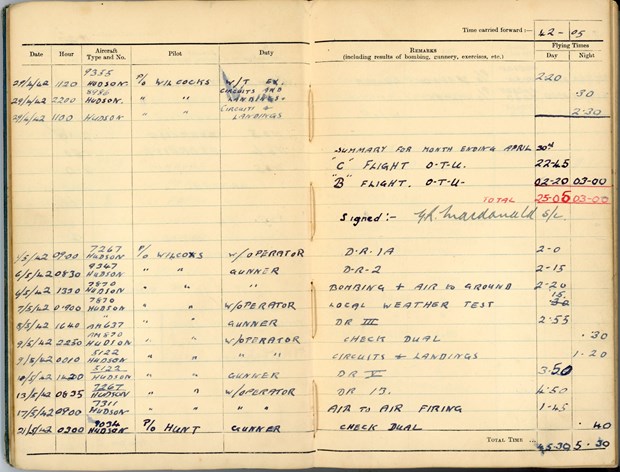 Time carried forward :— 42 - 05
Date Hour Aircraft Type and No. Pilot Duty Remarks (including results of bombing, gunnery, exercises, etc.) Flying Times Day Night
9355
29/4/42 1120 HUDSON. P/O WILCOCKS W/T EX. 2.20
29/4/42 2200 HUDSON. " " CIRCUITS AND LANDINGS. .30
29/4/42 1100 HUDSON " " CIRCUITS & LANDINGS 2.30
SUMMARY FOR MONTH ENDING APRIL 30th
"C" FLIGHT O.T.U. 22.45
"B" FLIGHT. O.T.U- 02-20 03-00
TOTAL 25-05 03-00
Signed :- Macdonald S/L
7267
1/5/42 0900 HUDSON P/O WILCOCKS W/OPERATOR D.R. 1A 2-0
9347
6/5/42 0830 HUDSON " " GUNNER D.R-2 2-15
7870
6/5/42 1330 HUDSON " " BOMBING & AIR TO GROUND 2-20
7870
7/5/42 0900 HUDSON " " W/OPERATOR LOCAL WEATHER TEST 15
8/5/42 1640 AM637 " " GUNNER DR III 2-55
AM570
9/5/42 2230 HUDSON " " W/OPERATOR CHECK DUAL .30
5122
9/5/42 0010 HUDSON " " " " CIRCUITS & LANDINGS 1.20
5122
10/5/42 HUDSON " " GUNNER DR V 3.50
7267
13/5/42 0835 HUDSON " " W/OPERATOR DR 13. 4.50
7311
17/5/42 0900 HUDSON " " " " AIR TO AIR FIRING 1-45
9034
21/5/42 0200 HUDSON P/O HUNT GUNNER CHECK DUAL .40
Total Time ... 45-30 5.30